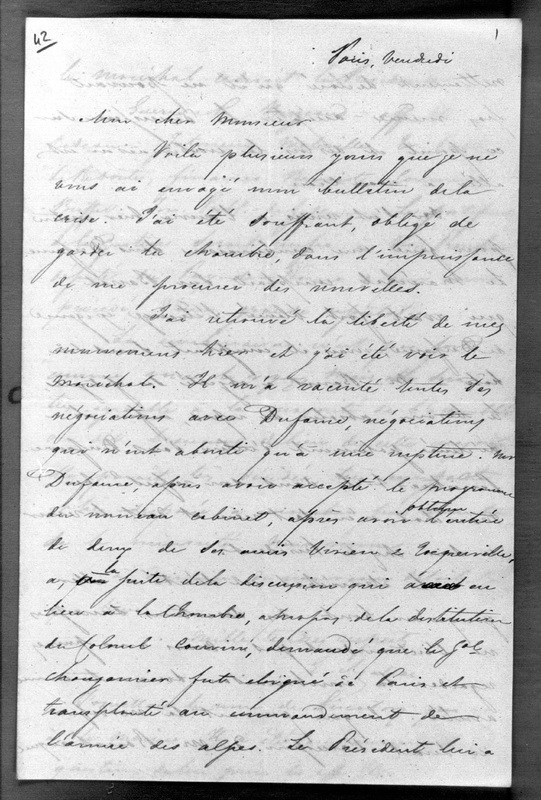 42
1
Paris, Vendredi
Mon cher Monsieur
Voilà plusieurs jours que je ne
vous ai envoyé mon bulletin de la
crise. J'ai été souffrant, obligé de
garder la chambre, dans l'impuissance
de me procurer des nouvelles.
J'ai retrouvé la liberté de mes
mouvemens hier et j'ai été voir le
Maréchal. Il m'a raconté toutes ses
négociations avec Dufaure, négociations
qui n'ont abouti qu'à une rupture.
Dufaure, après avoir accepté le programme
du nouveau cabinet, après avoir obtenu l'entrée
de deux de ses amis Vivien & Tocqueville,
a, à la suite de la discussion qui a eu
lieu à la Chambre, à propos de la destitution
du Colonel, demandé que le Gal
Changarnier fut éloigné de Paris et
transplanté au commandement de
l'armée des alpes. Le Président lui a